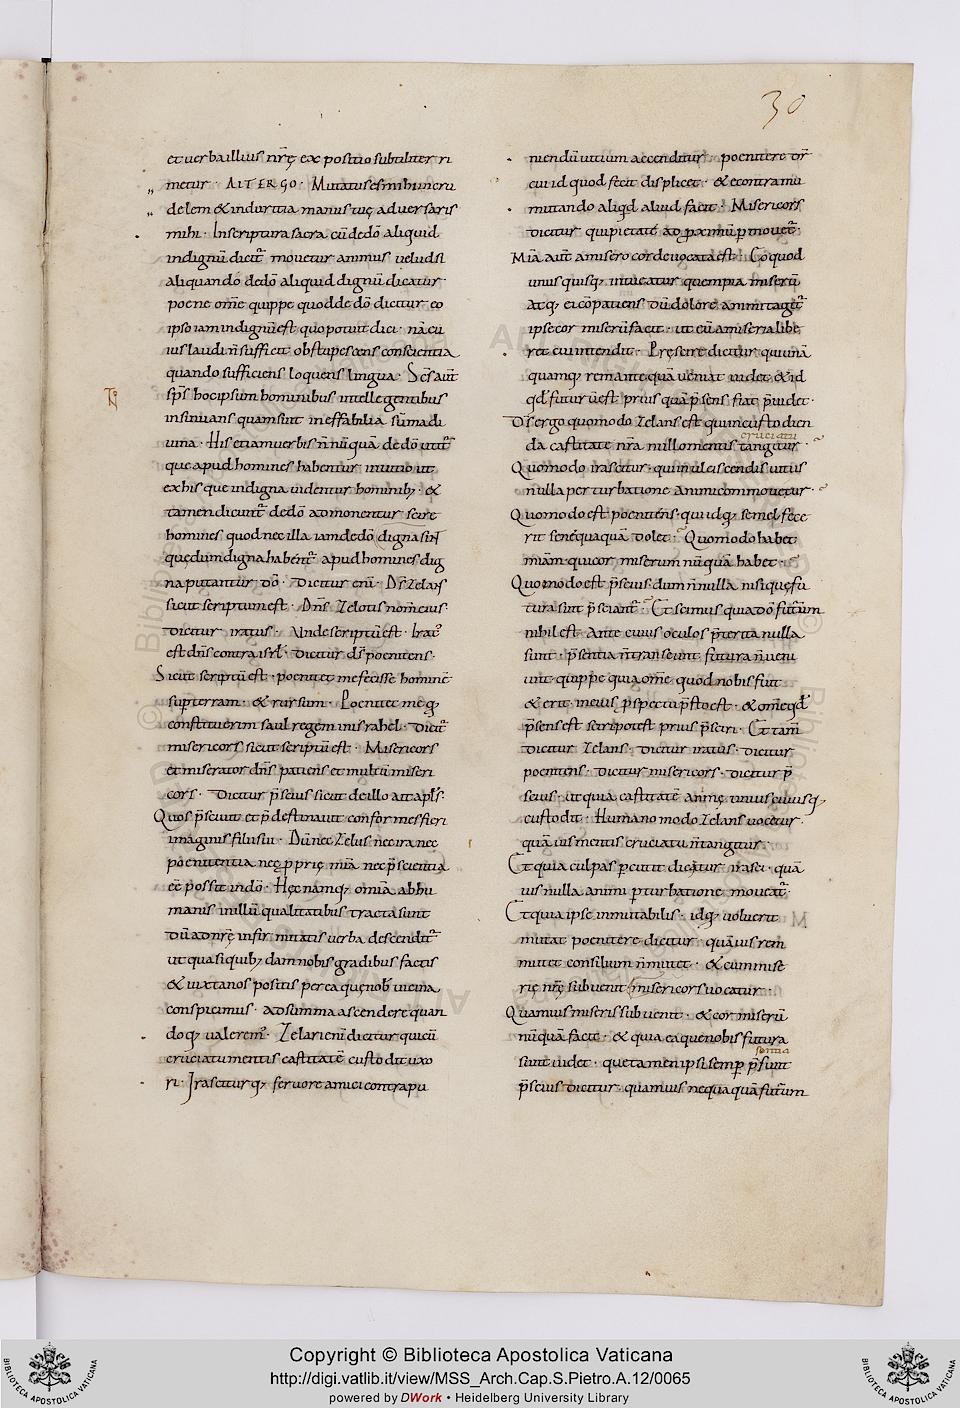 30
et verba illius nr̄ę expositio subtiliter ri
metur · AIT ERGO · Mutatus es mihi in cru
delem & in duritia manus tuę adversaris
mihi · In scriptura sacra cū de dō aliquid
indignū dicit᷑ movetur animus velud si
aliquando de dō aliquid dignū dicatur
poene om̄e quippe quod de dō dicitur eo
ipso iam indignū est quo potuit dici · nā cu
ius laudi n̄ sufficit obstupescens conscientia
quando sufficiens loquens lingua · Sc̄s aūt
sp̄s hoc ipsum hominibus intellegentibus
insinuans quam sint ineffabilia sūma di
vina · His etiam verbis n̄nūquā de dō utit᷑
que apud homines habentur in vitio ut
ex his que indigna videntur hominib; &
tamen dicunt᷑ de dō admonentur scire
homines quod nec illa iam de dō digna sin̄
quędum digna habent᷑ apud homines dig
na putantur dō · Dicitur enī · Ds̄ zelans
sicut scriptum est · Dn̄s zelotis nom̄ eius
Dicitur iratus · Unde scriptū est · Irat᷒
est dn̄s contra isrl̄ · Dicitur ds̄ poenitens ·
Sicut scriptū est · poenitet me fecisse hominē
sup̱ terram · & rursum · Poenitet me q;
constituerim saul regem in israhel · Dicit᷑
misericors sicut scriptū est · Misericors
et miserator dn̄s patiens et multū miseri
cors · Dicitur p̄scius sicut de illo ait apl̄s ·
Quos p̄scivit et p̄destinavit conformes fieri
imaginis filii sui · Dū nec zelus nec ira nec
poenitentia nec ꝓprię mīa nec p̄scientia
eē possit in dō · Hęc namq; om̄ia ab hu
manis in illū qualitatibus tracta sunt
dū ad nr̄ę infirmitatis verba descendit᷑
ut quasi quib;dam nobis gradibus factis
& iuxta nos positis per ea quę nob̄ vicina
conspicimus · ad summa ascendere quan
doq; valeam᷒ · Zelari enī dicitur qui cū
cruciatu mentis castitatē custodit uxo
ri · Irasciturq; fervore animi contra pu
niendū vitium accenditur · poenitere cr̄
cui id quod fecit displicet · & econtra mu
mutando aliqd aliud facit · Misericors
dicitur qui pietate ad ꝓximū ꝑmovet᷑ ·
Mīa aūt a misero corde vocata est · Eo quod
unus quisq; intueatur quempiā miserū
Atq; ei cōpatiens dū dolore animi tangit᷑
ipse cor miserū facit · ut eū a miseria libe
ret cui intendit · Pręscire dicitur qui unā
quamq; rem ante quā veniat videt & id
qd futurū est prius quā p̄sens fiat p̄videt ·
Ds̄ ergo quomodo zelans est qui in custodien
cruciatu
da castitate nr̄a nullo mentis tangitur ·
Quomodo irascitur · qui in ulciscendis vitiis
nulla perturbatione animi commovetur ·
Quomodo est poenitens · qui id q; semel fece
rit se nequaquā dolet · Quomodo habet
mīam · qui cor miserum nūquā habet ·
Quomodo est p̄scius · dum n̄nulla nisi quę fu
tura sint p̄sciant᷑ · Et scimus quia dō futūm
nihil est · Ante cuius oculos p̄terita nulla
sunt · p̄sentia n̄ transeunt · futura n̄ veni
unt quippe quia om̄e quod nobis fuit
& erit · in eius ꝓspectu p̄sto est · & om̄e qd
p̄sens est scire potest prius p̄sciri · Et tam̄
dicitur zelans · dicitur iratus · dicitur
poenitens · dicitur misericors · dicitur p̄
scius · ut quia castitatē anīmę unius cuiusq;
custodit · Humano modo zelans vocetur ·
quāvis mentis cruciatu n̄ tangitur ·
Et quia culpas ꝑcutit dicatur irasci · quā
vis nulla animi ꝑturbatione moveat᷑ ·
Et quia ipse inmutabilis · id q; voluerit
mutat poenitere dicitur · quāvis rem
mutet consilium n̄ mutet · & cum mise
rię nr̄ę subvenit misericors vocatur ·
Quamvis miseris subvenit · & cor miserū
nūquā facit · & quia ea que nobis futura
sentia
sunt videt · que tamen ipsi semp̱ p̄ sunt
p̄scius dicitur · quamvis nequaquā futūm
Copyright © Biblioteca Apostolica Vaticana
http://digi.vatlib.it/view/MSS_Arch.Cap.S.Pietro.A.12/0065
powered by DWork • Heidelberg University Library